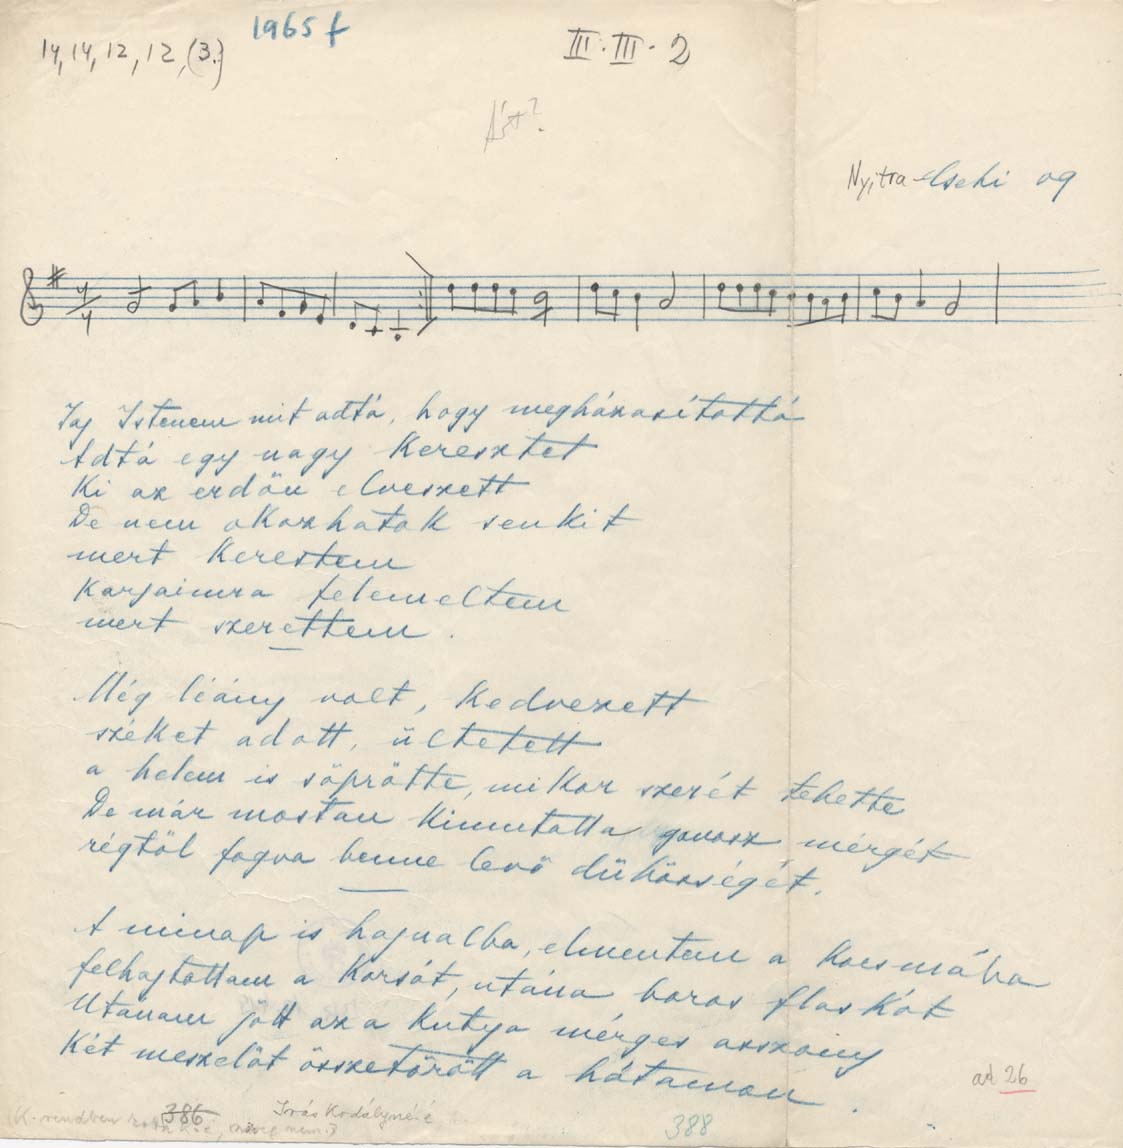 14, 14, 12, 12, (3.)
1965 f
III. III. 2
Nyitra-Csehi 09
4/4
Jaj Istenem mit adtá, hogy megházasítottá
Adtá egy nagy keresztet
Ki az erdőn elveszett
De nem okozhatok senkit
mert kerestem
karjaimra felemeltem
mert szerettem.
Még léány volt, kedvezett
széket adott, ültetett
a helem is söprötte, mikor szerét tehette
De már mostan kimutatta gonosz mérgét
régtöl fogva benne levö dühösségét.
A minap is hajnalba, elmentem a kocsmába
felhajtottam a korsót, utána boros flaskót
Utanam jött az a kutya mérges asszony
Két meszelöt összetörött a hátamon.
ad 26
386
Irás Kodályné-é
K-rendben
388